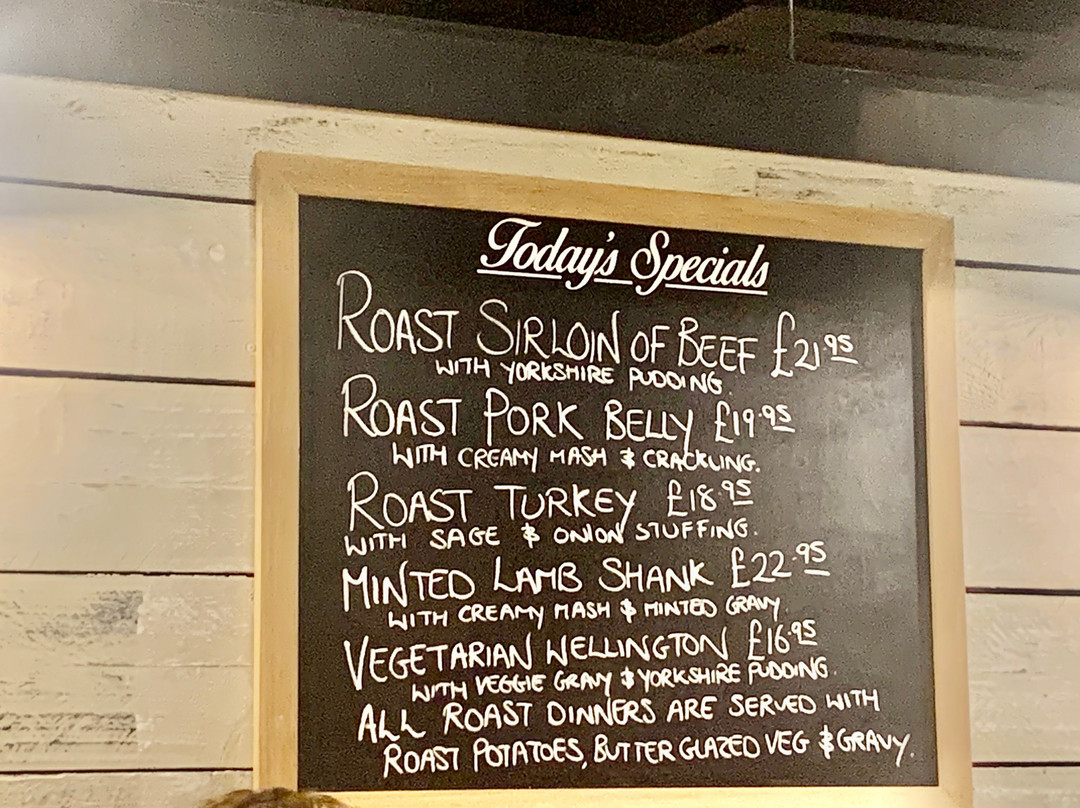 Today's Specials
ROAST SIRLOIN OF BEEF £21.95
WITH YORKSHIRE PUDDING.
ROAST PORK BELLY £19.95
WITH CREAMY MASH & CRACKLING.
ROAST TURKEY £18.95
WITH SAGE & ONION STUFFING.
MINTED LAMB SHANK £22.95
WITH CREAMY MASH & MINTED GRAVY
VEGETARIAN WELLINGTON £16.95
WITH VEGGIE GRAVY & YORKSHIRE PUDDING.
ALL ROAST DINNERS ARE SERVED WITH
ROAST POTATOES, BUTTER GLAZED VEG & GRAVY.